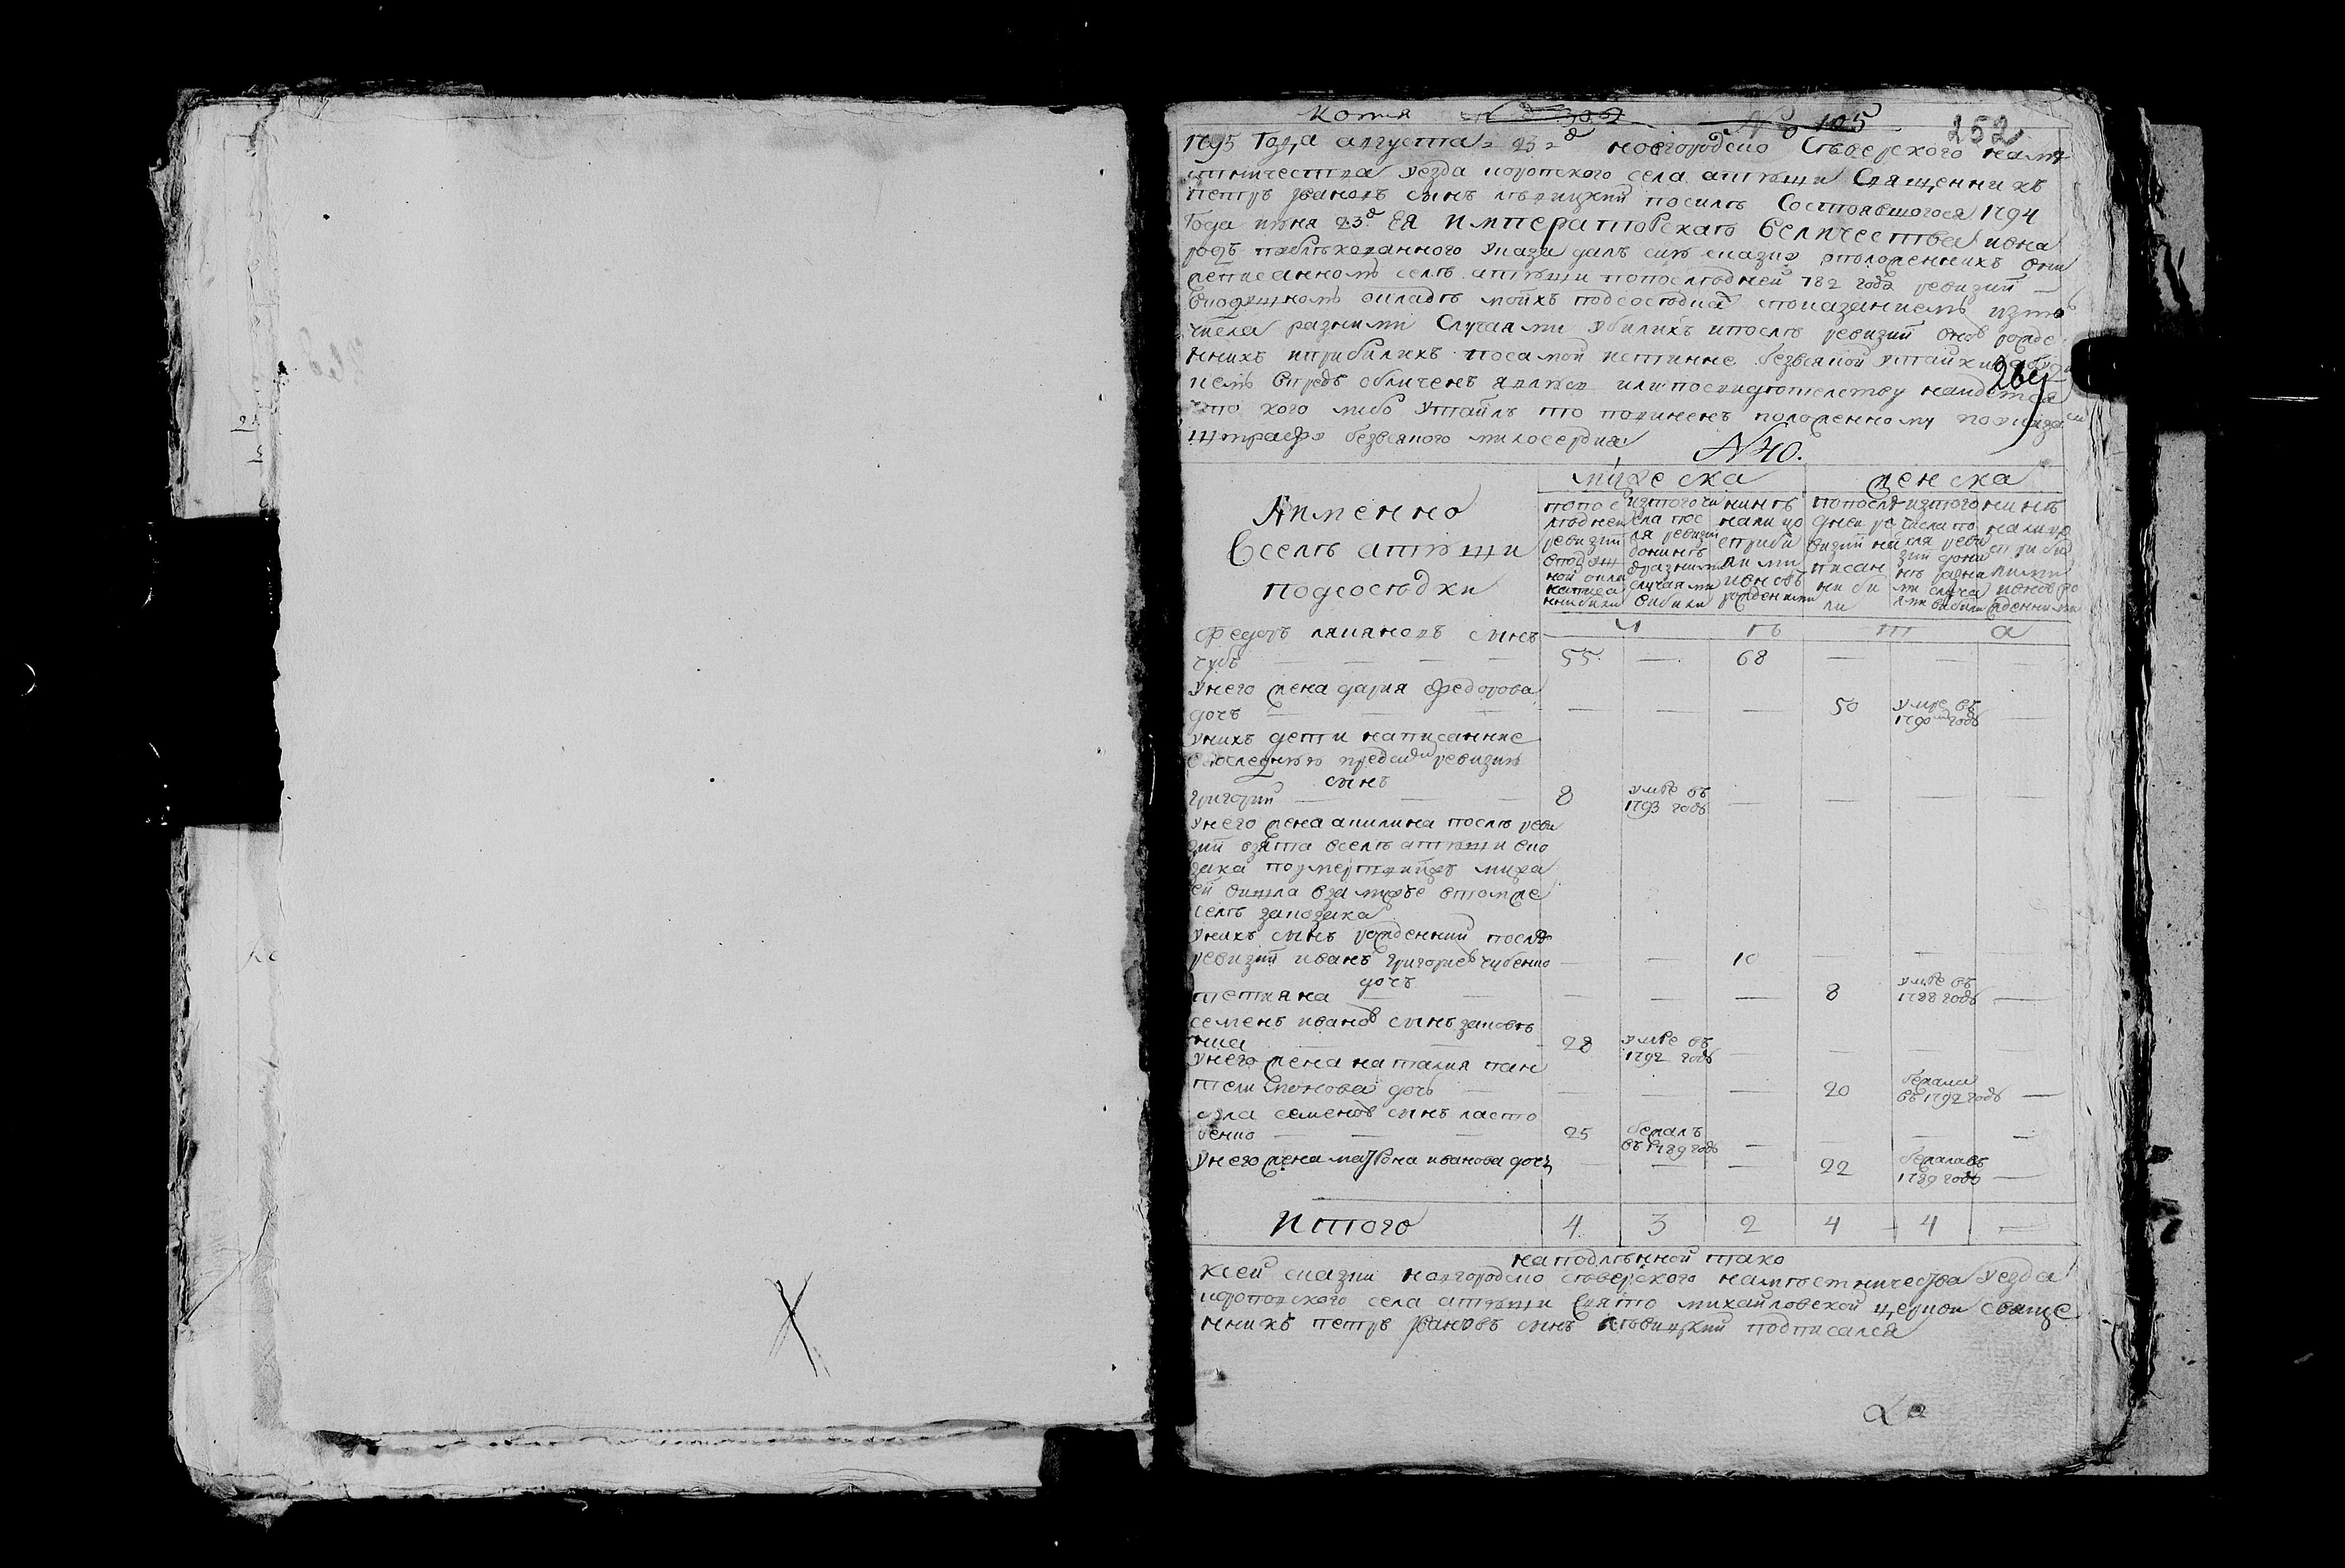 Копия № 302 № 105 252
1795 года августа 23 д новгородско северского наме
стничества уезда коропского села атюши Священникъ
петръ Ивановъ сынъ левицкий посилъ Состоявшогося 1794
года июня 23 д ЕЯ Императорскаго Величества ивна
родъ публѣкованного указа далъ сию сказку оположеннихъ
писанномъ селѣ атюши попослѣдней 782 года ревизий
вподушномъ окладѣ моихъ подсосѣдка споказаниемъ изтого
числа разними Случаями убилихъ ипослѣ ревизий вновъ рожде
ннихъ иприбилихъ посамой истинне безвсякой утайки
немъ впредъ обличенъ явлюся илипосвидетелству найдется
что кого либо утаилъ то повиненъ положенному поуказа
штрафу безвсякого милосердия
264
№ 40.
Аименно
Вселѣ атюши
подсосѣдки
мужеска женска
попослѣдней ревизий вподушной оклад написанни били
изтогочисла после ревизий донинѣ разними случаями вибили
нинѣ налицо сприбилими ивновъ рожденними
попоследней ревизий написанни били
изтого числа после ревизий донинѣ разними случаями вибили
нинѣ налицо сприбилими ивновъ рожденними
л ѣ т а
Федоръ лукяновъ синъ
чубъ — 55. — 68 — — —
Унего жена дария Федорова
дочъ — — — — 50 умре въ 1790м годѣ —
Унихъ дети написанние
впоследнюю предсимъ ревизию
синъ
григорий — 8 умре въ 1793 годѣ — — — —
Унего жена акилина послѣ реви
зий взята вселѣ атюши вко
зака поумертвии мужа
ей вишла взамужъе втомже
селѣ закозака
Унихъ синъ рожденний послѣ
ревизий иванъ григориевъ чубенко — — 10 — — —
дочъ
тетяна — — — — 8 умре въ 1788 годѣ —
семенъ ивановъ синъ
28 умре въ 1792 годѣ — — — —
Унего жена наталия пан
телимонова дочъ — — — — 20 бежала въ 1792 годѣ —
сила семеновъ синъ ласто
венко — 25 бежалъ въ 1789 годѣ — — — —
Унего жена матрона иванова дочъ — — — 22 бежала въ 1789 годѣ —
Итого 4 3 2 4 4 —
наподлѣнной тако
Ксей сказки новгородско северского намѣстничества уезда
коропского села атюши Свято михайловской церкви свяще
нникъ петръ Ивановъ синъ левицкий подписался